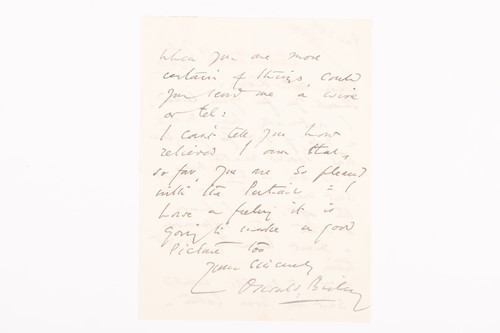 When you are more
certain of things, could
you send me a wire
or tel:
I can't tell you how
relieved I am that,
so far, you are so pleased
with the Portrait = I
have a feeling it is
going to make a good
Picture too
Yours sincerely
Oswald Birley